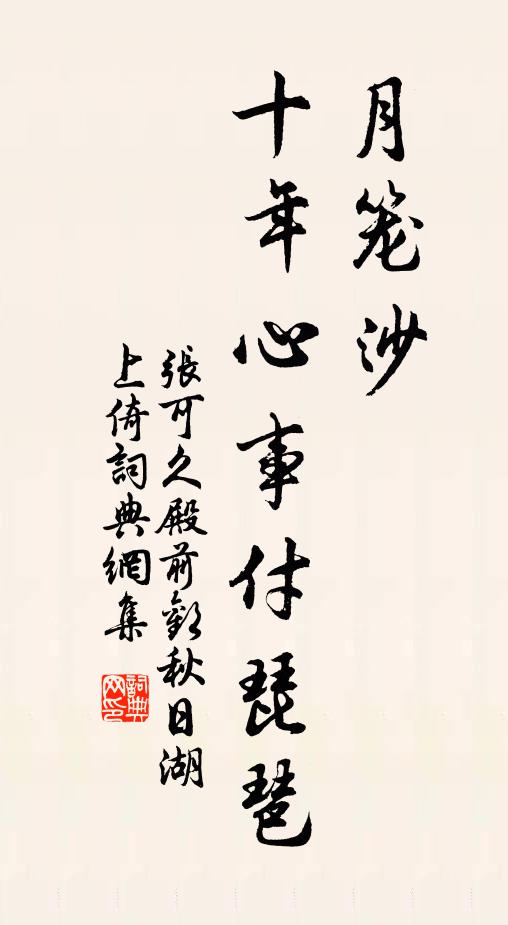 月笼沙
十年心事付琵琶
張可久殿前歡秋日湖
上倚詞典網集
詞典网印